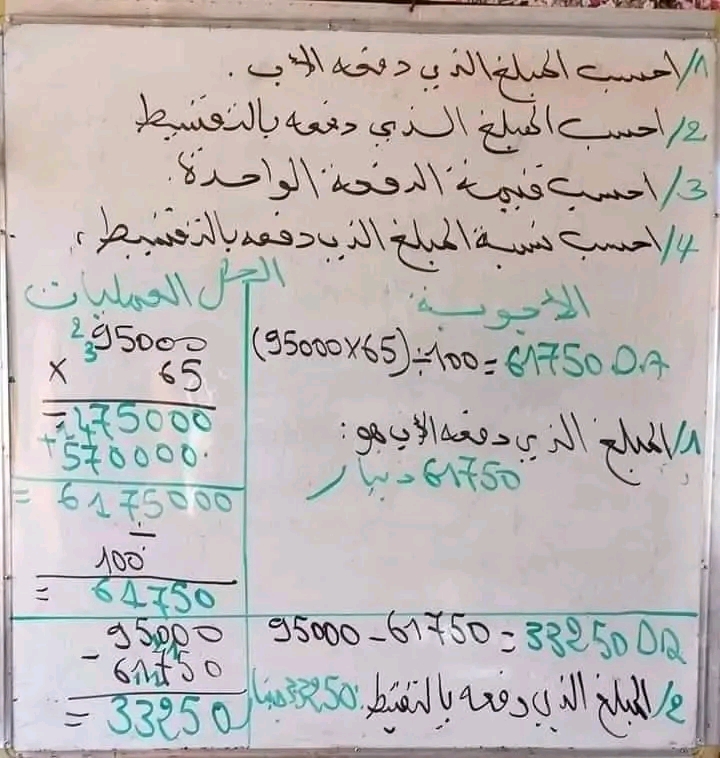 1/ احسب المبلغ الذي دفعه الأب .
2/ احسب المبلغ الذي دفعه بالتقسيط
3/ احسب قيمة الدفعة الواحدة.
4/ احسب نسبة المبلغ الذي دفعه بالتقسيط .
الحل
الأجوبة
(95000×65)÷100=61750 DA
1/ المبلغ الذي دفعه الأب هو:
61750 دينار
95000-61750=33250 DA
2/ المبلغ الذي دفعه بالتقسيط: 33250 دينار
العمليات
2
3
95000
× 65
=475000
+570000.
=6175000
100
= 61750
95000
- 61750
= 33250